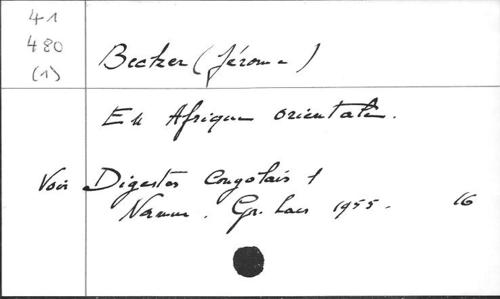 41
480
(1)
Becker (Jérome)
En Afrique orientale.
Voir Digestes Congolais 1
Namur. Gr. Lacs 1955. 16